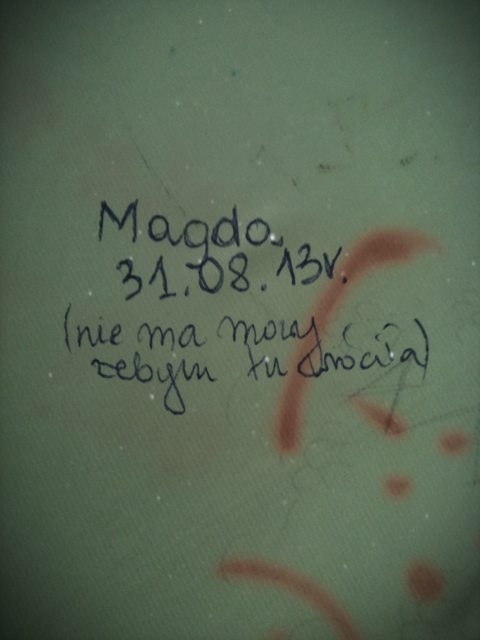 Magda
31.08.13r.
(nie ma mowy
żebym tu wróciła)